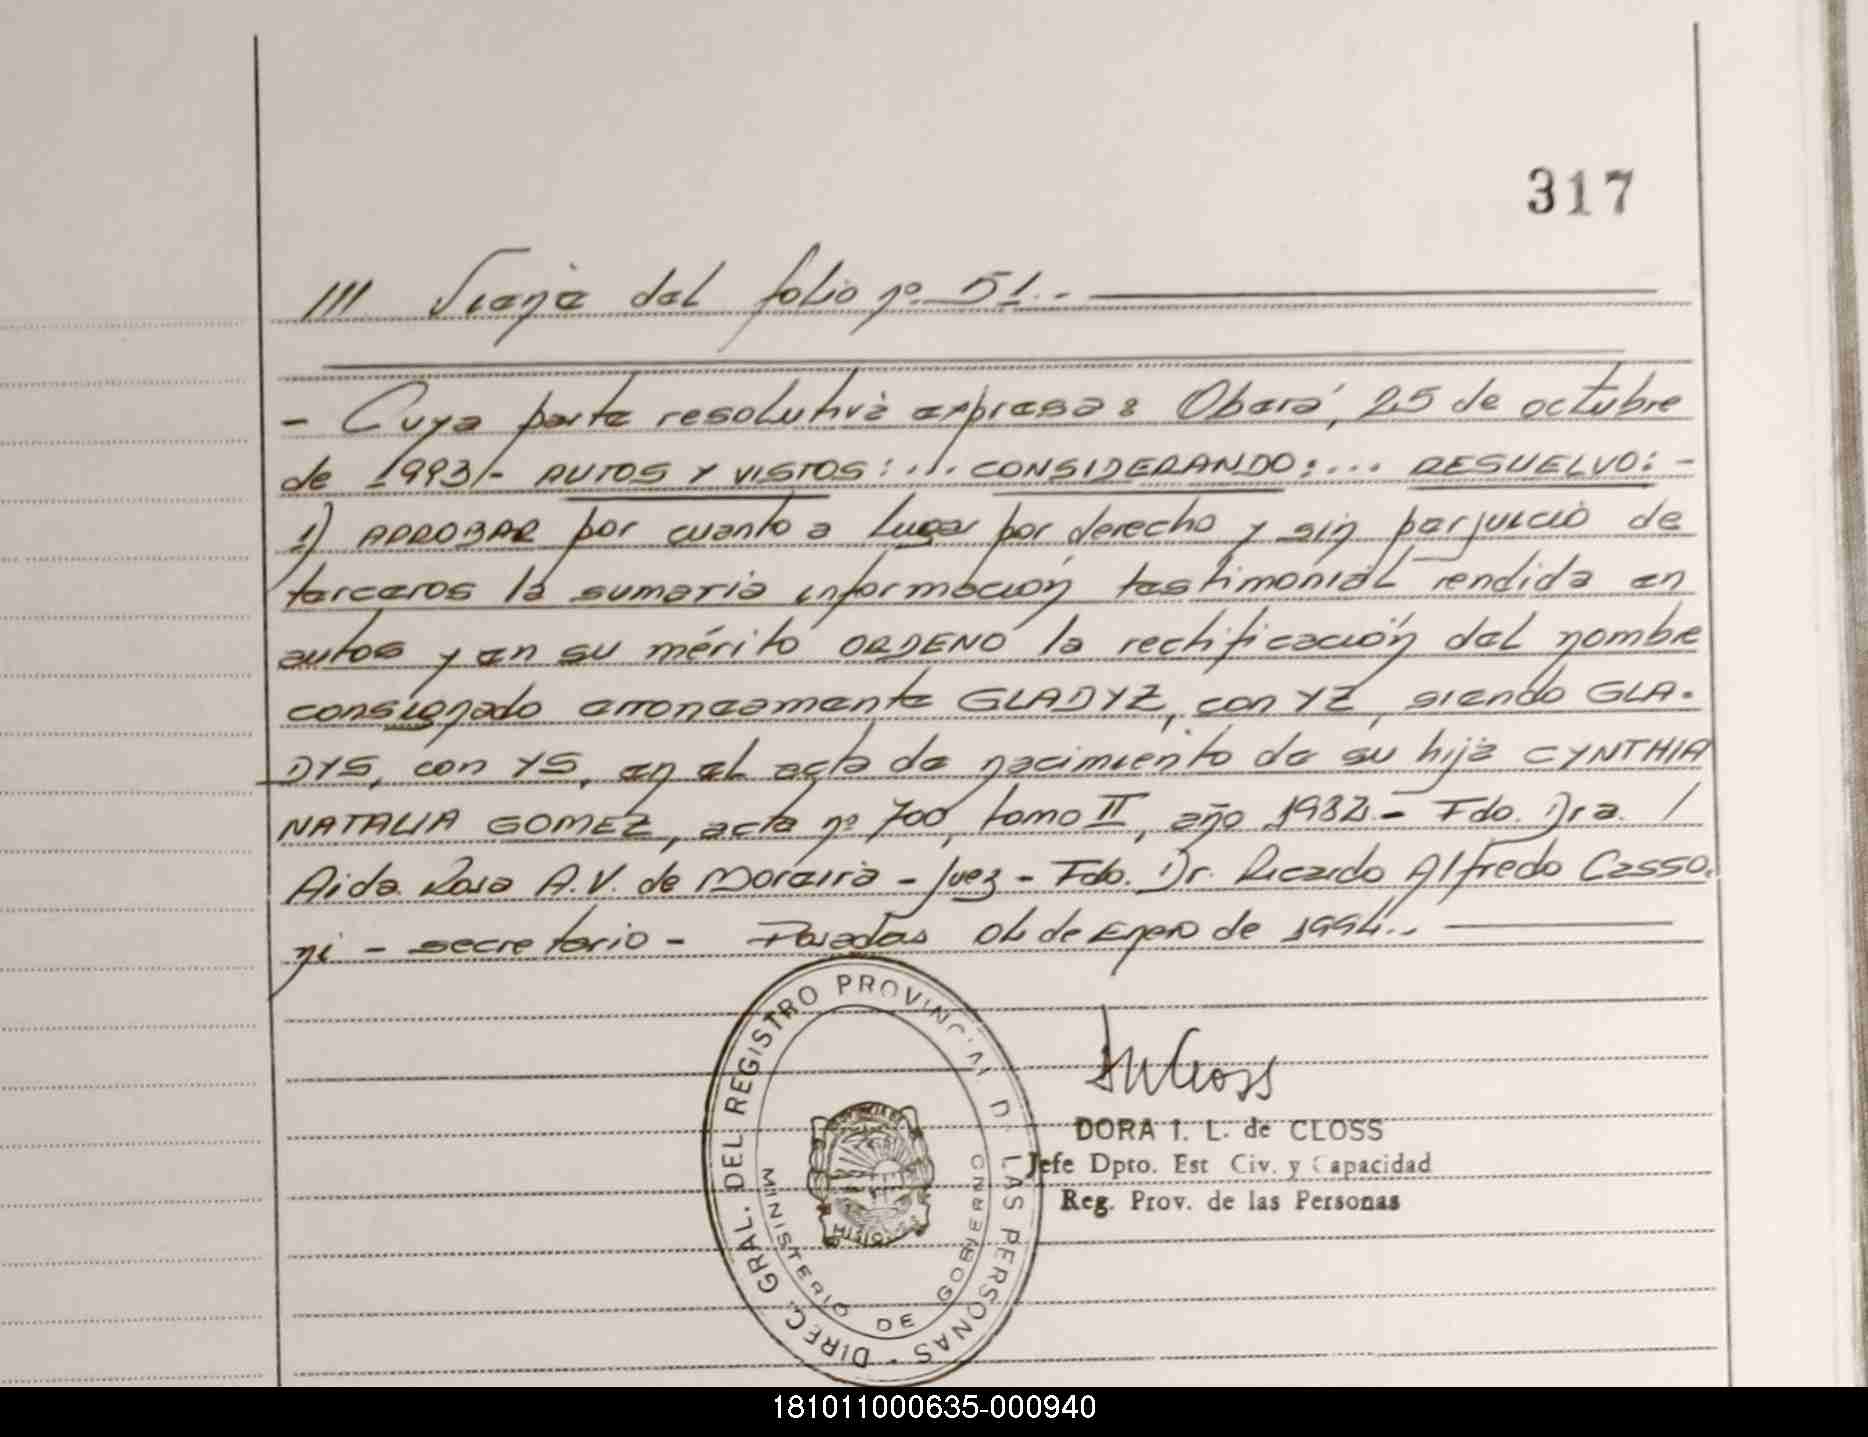 317
/// Viene del folio nº 51.-
- Cuya parte resolutiva expresa: Oberá, 25 de octubre
de 1993/- AUTOS Y VISTOS:... CONSIDERANDO:... RESUELVO:-
1) APROBAR por cuanto a lugar por derecho y sin perjuicio de
terceros la sumaria información testimonial rendida en
autos y en su mérito ORDENO la rectificación del nombre
consignado erroneamente GLADYZ, con YZ, siendo GLA-
DYS, con YS, en el acta de nacimiento de su hija CYNTHIA
NATALIA GOMEZ, acta nº 700, tomo II, año 1982.- Fdo. Dra. /
Aida Rosa A.V. de Moreira - Juez - Fdo. Dr. Ricardo Alfredo Casso-
ni - secretario - Posadas 04 de Enero de 1994..
DIREC. GRAL. DEL REGISTRO PROVINCIAL DE LAS PERSONAS -
MINISTERIO DE GOBIERNO
DORA I. L. de CLOSS
Jefe Dpto. Est Civ. y Capacidad
Reg. Prov. de las Personas
181011000635-000940